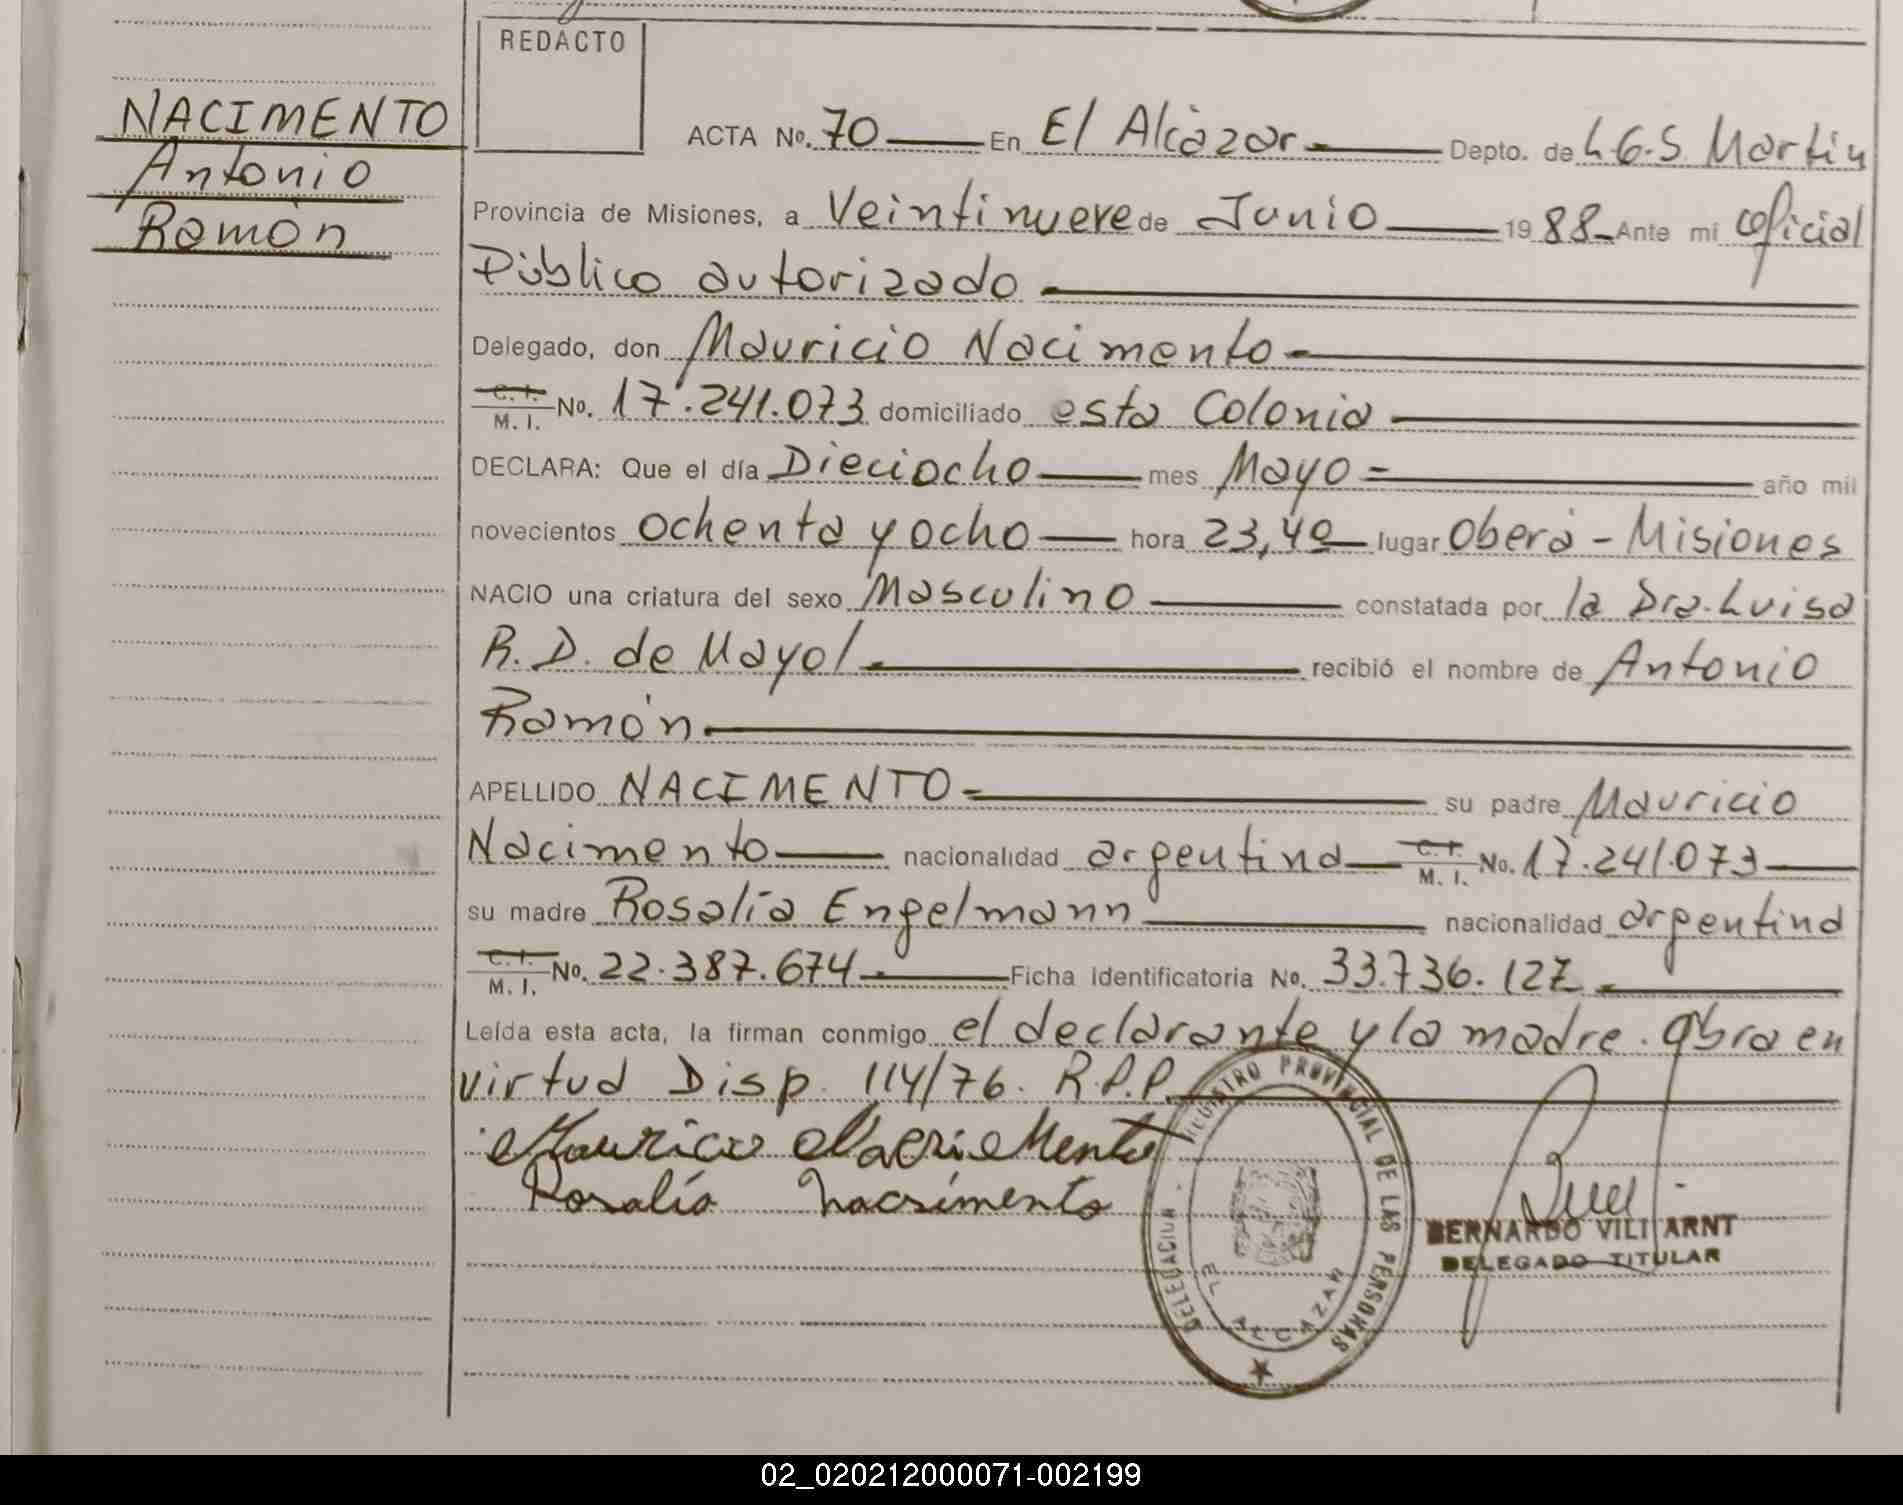 REDACTO
NACIMENTO
Antonio
Ramón
ACTA Nº. 70 En El Alcázar Depto. de L G. S. Martín
Provincia de Misiones, a Veintinueve de Junio 1988 Ante mi oficial
Público autorizado
Delegado, don Mauricio Nacimento
C. I. M. I. Nº. 17.241.073 domiciliado esta Colonia
DECLARA: Que el día Dieciocho mes Mayo año mil
novecientos ochenta y ocho hora 23,40 lugar Oberá - Misiones
NACIO una criatura del sexo Masculino constatada por la Dra. Luisa
R. D. de Mayol recibió el nombre de Antonio
Ramón
APELLIDO NACIMENTO su padre Mauricio
Nacimento nacionalidad argentina C. I. M. I. Nº. 17.241.073
su madre Rosalía Engelmann nacionalidad argentina
C. I. M. I. Nº. 22.387.674 Ficha Identificatoria Nº. 33.736.127
Leída esta acta, la firman conmigo el declarante y la madre. Obra en
virtud Disp. 114/76. R.P.P.
Mauricio Nacimento
Rosalía Nacsimento
REGISTRO PROVINCIAL DE LAS PERSONAS
DELEGACION
EL ALCAZAR
BERNARDO VILI ARNT
DELEGADO TITULAR
02_020212000071-002199